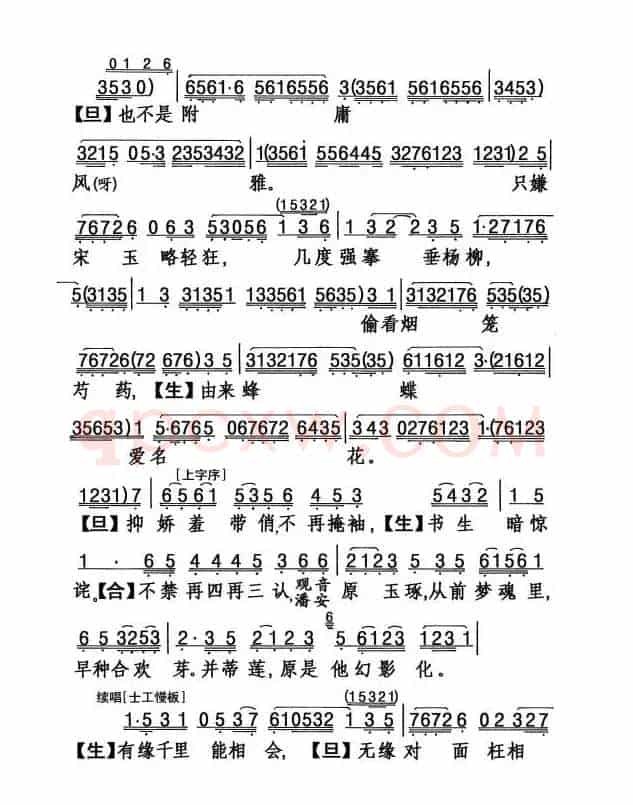 0 1 2 6
3530) | 6561·6 5616556 3(3561 5616556 | 3453)
【旦】也不是 附 庸
3215 05·3 2353432 | 1(3561 556445 3276123 1231) 2 5
风(呀) 雅。 只嫌
(15321)
76726 0 6 3 53056 1 3 6 | 1 3 2 2 3 5 1·27176
宋 玉 略轻狂， 几度强搴 垂杨柳，
5(3135 | 1 3 31351 133561 5635) 3 1 | 3132176 535(35)
偷看烟 笼
76726(72 676) 3 5 | 3132176 535(35) 611612 3·(21612
芍 药，【生】由来蜂 蝶
qpcxw.COM
35653) 1 5·6765 067672 6435 | 3 4 3 0276123 1·(76123
爱名 花。
[上字序]
1231) 7 | 6561 5356 4 5 3 | 5432 | 1 5
【旦】抑娇羞 带俏，不再掩袖，【生】书生 暗惊
1 · 65 4445 3 6 6 | 2123 5 3 5 61561
诧。【合】不禁再四再三认，观音 潘安 原 玉琢，从前梦魂里，
6
6 5 3253 | 2·3 5 212 3 5 6123 1231 |
早种合欢 芽。并蒂莲，原是 他幻影 化。
续唱[士工慢板] (15321)
1·531 0537 610532 1 3 5 | 76726 02327
【生】有缘千里 能相 会，【旦】无缘对 面枉相